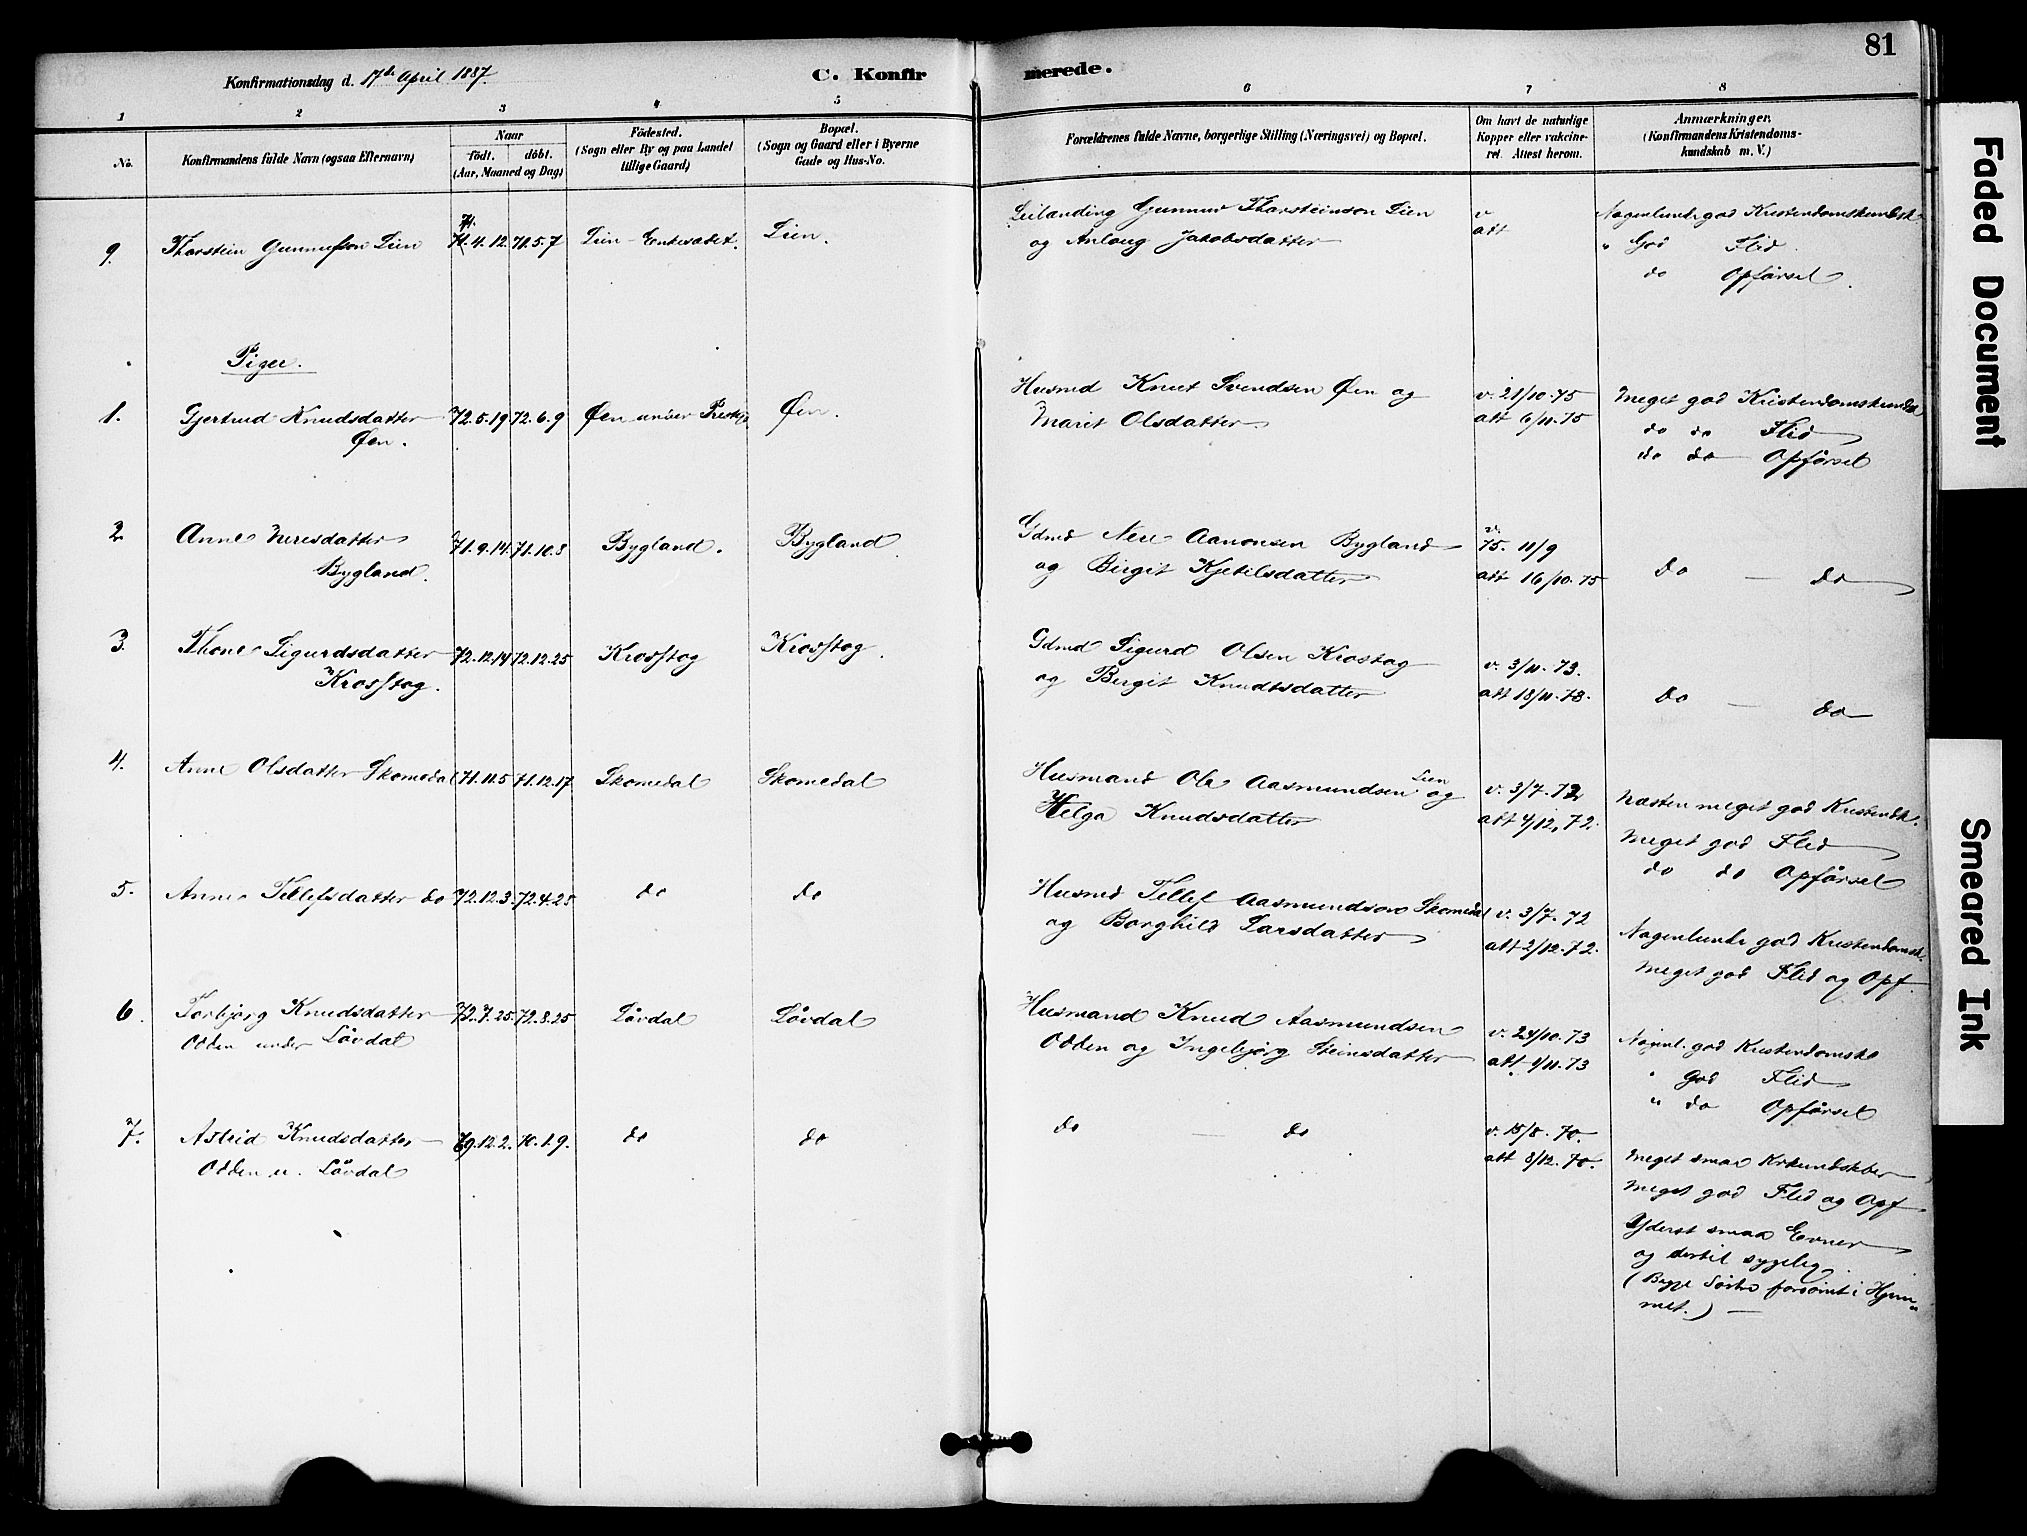 81
Konfirmationsdag d. 17de April 1887.
C. Konfirmerede.
1 2 3 4 5 6 7 8
No.
Konfirmandens fulde Navn (ogsaa Efternavn)
Naar
födt. döbt.
(Aar, Maaned og Dag)
Födested.
(Sogn eller By og paa Landet
tillige Gaard)
Bopæl.
(Sogn og Gaard eller i Byerne
Gade og Hus-No.
Forældrenes fulde Navne, borgerlige Stilling (Næringsvei) og Bopæl.
Om havt de naturlige
Kopper eller vakcine-
ret. Attest herom.
Anmærkninger.
(Konfirmandens Kristendoms-
kundskab m. V.)
9. Thorstein Gunnufson Lien 71.4.12. 71.5.7 Lien - Enkesædet. Lien.
Leilænding Gunnuv Thorsteinson Lien
og Anlaug Jakobsdatter
v
att
Nogenlunde god Kristendomskundsk.
" God Flid.
do Opførsel.
Piger.
1. Gjertrud Knudsdatter
Øen.
72.5.19 72.6.9 Øen under Presteg. Øen.
Husmd Knut Svendsen Øen og
Marit Olsdatter
v. 21/10.75
att 6/11.75
Meget god Kristendomskundsk
do do Flid
do do Opførsel
2 Anne Neresdatter
Bygland.
71.9.14. 71.10.8 Bygland. Bygland
Gdmd Nere Aanonsen Bygland
og Birgit Kjetilsdatter
v.
75. 11/9
att 16/10.75
Do — do
3. Thone Sigurdsdatter
Krosstog.
72.12.14 72.12.25 Krosstog Krosstog.
Gdmd Sigurd Olsen Krostog
og Bergit Knudtsdatter
v. 3/11.73.
att 18/11.73.
Do — do
4. Anne Olsdatter Skomedal 71.11.5 71.12.17 Skomedal Skomedal
Husmand Ole Aasmundsen Lien og
Helga Knudsdatter
v. 3/7.72
att 4/12.72.
Næsten meget god Kristendsk.
Meget god Flid
do do Opførsel
5. Anne Tellefsdatter do 72.12.3. 72.4.28 do do
Husmd Tellef Aasmundson Skomedal
og Borghild Larsdatter
v. 3/7.72
att 2/12.72.
Nogenlunde god Kristendomsk.
Meget god Flid og Opf.
6. Torbjørg Knudsdatter
Odden under Løvdal
72.7.25. 72.8.25 Løvdal Løvdal
Husmand Knud Aasmundsen
Odden og Ingebjørg Steinsdatter
v. 24/10.73
att 1/11.73
Nogenl. god Kristendomsk
" God Flid
" do Opførsel
7. Astrid Knudsdatter
Odden u. Løvdal
69.12.2. 70.1.9. do do
do — do
v. 15/8.70.
att 8/12.70.
Meget smaa Krkundskber
Meget god Flid og Opf
Yderst smaa Evner
og dertil sygelig.
(Begge Søstre forsømt i Hjem-
met.) —
Faded Document
Smeared Ink